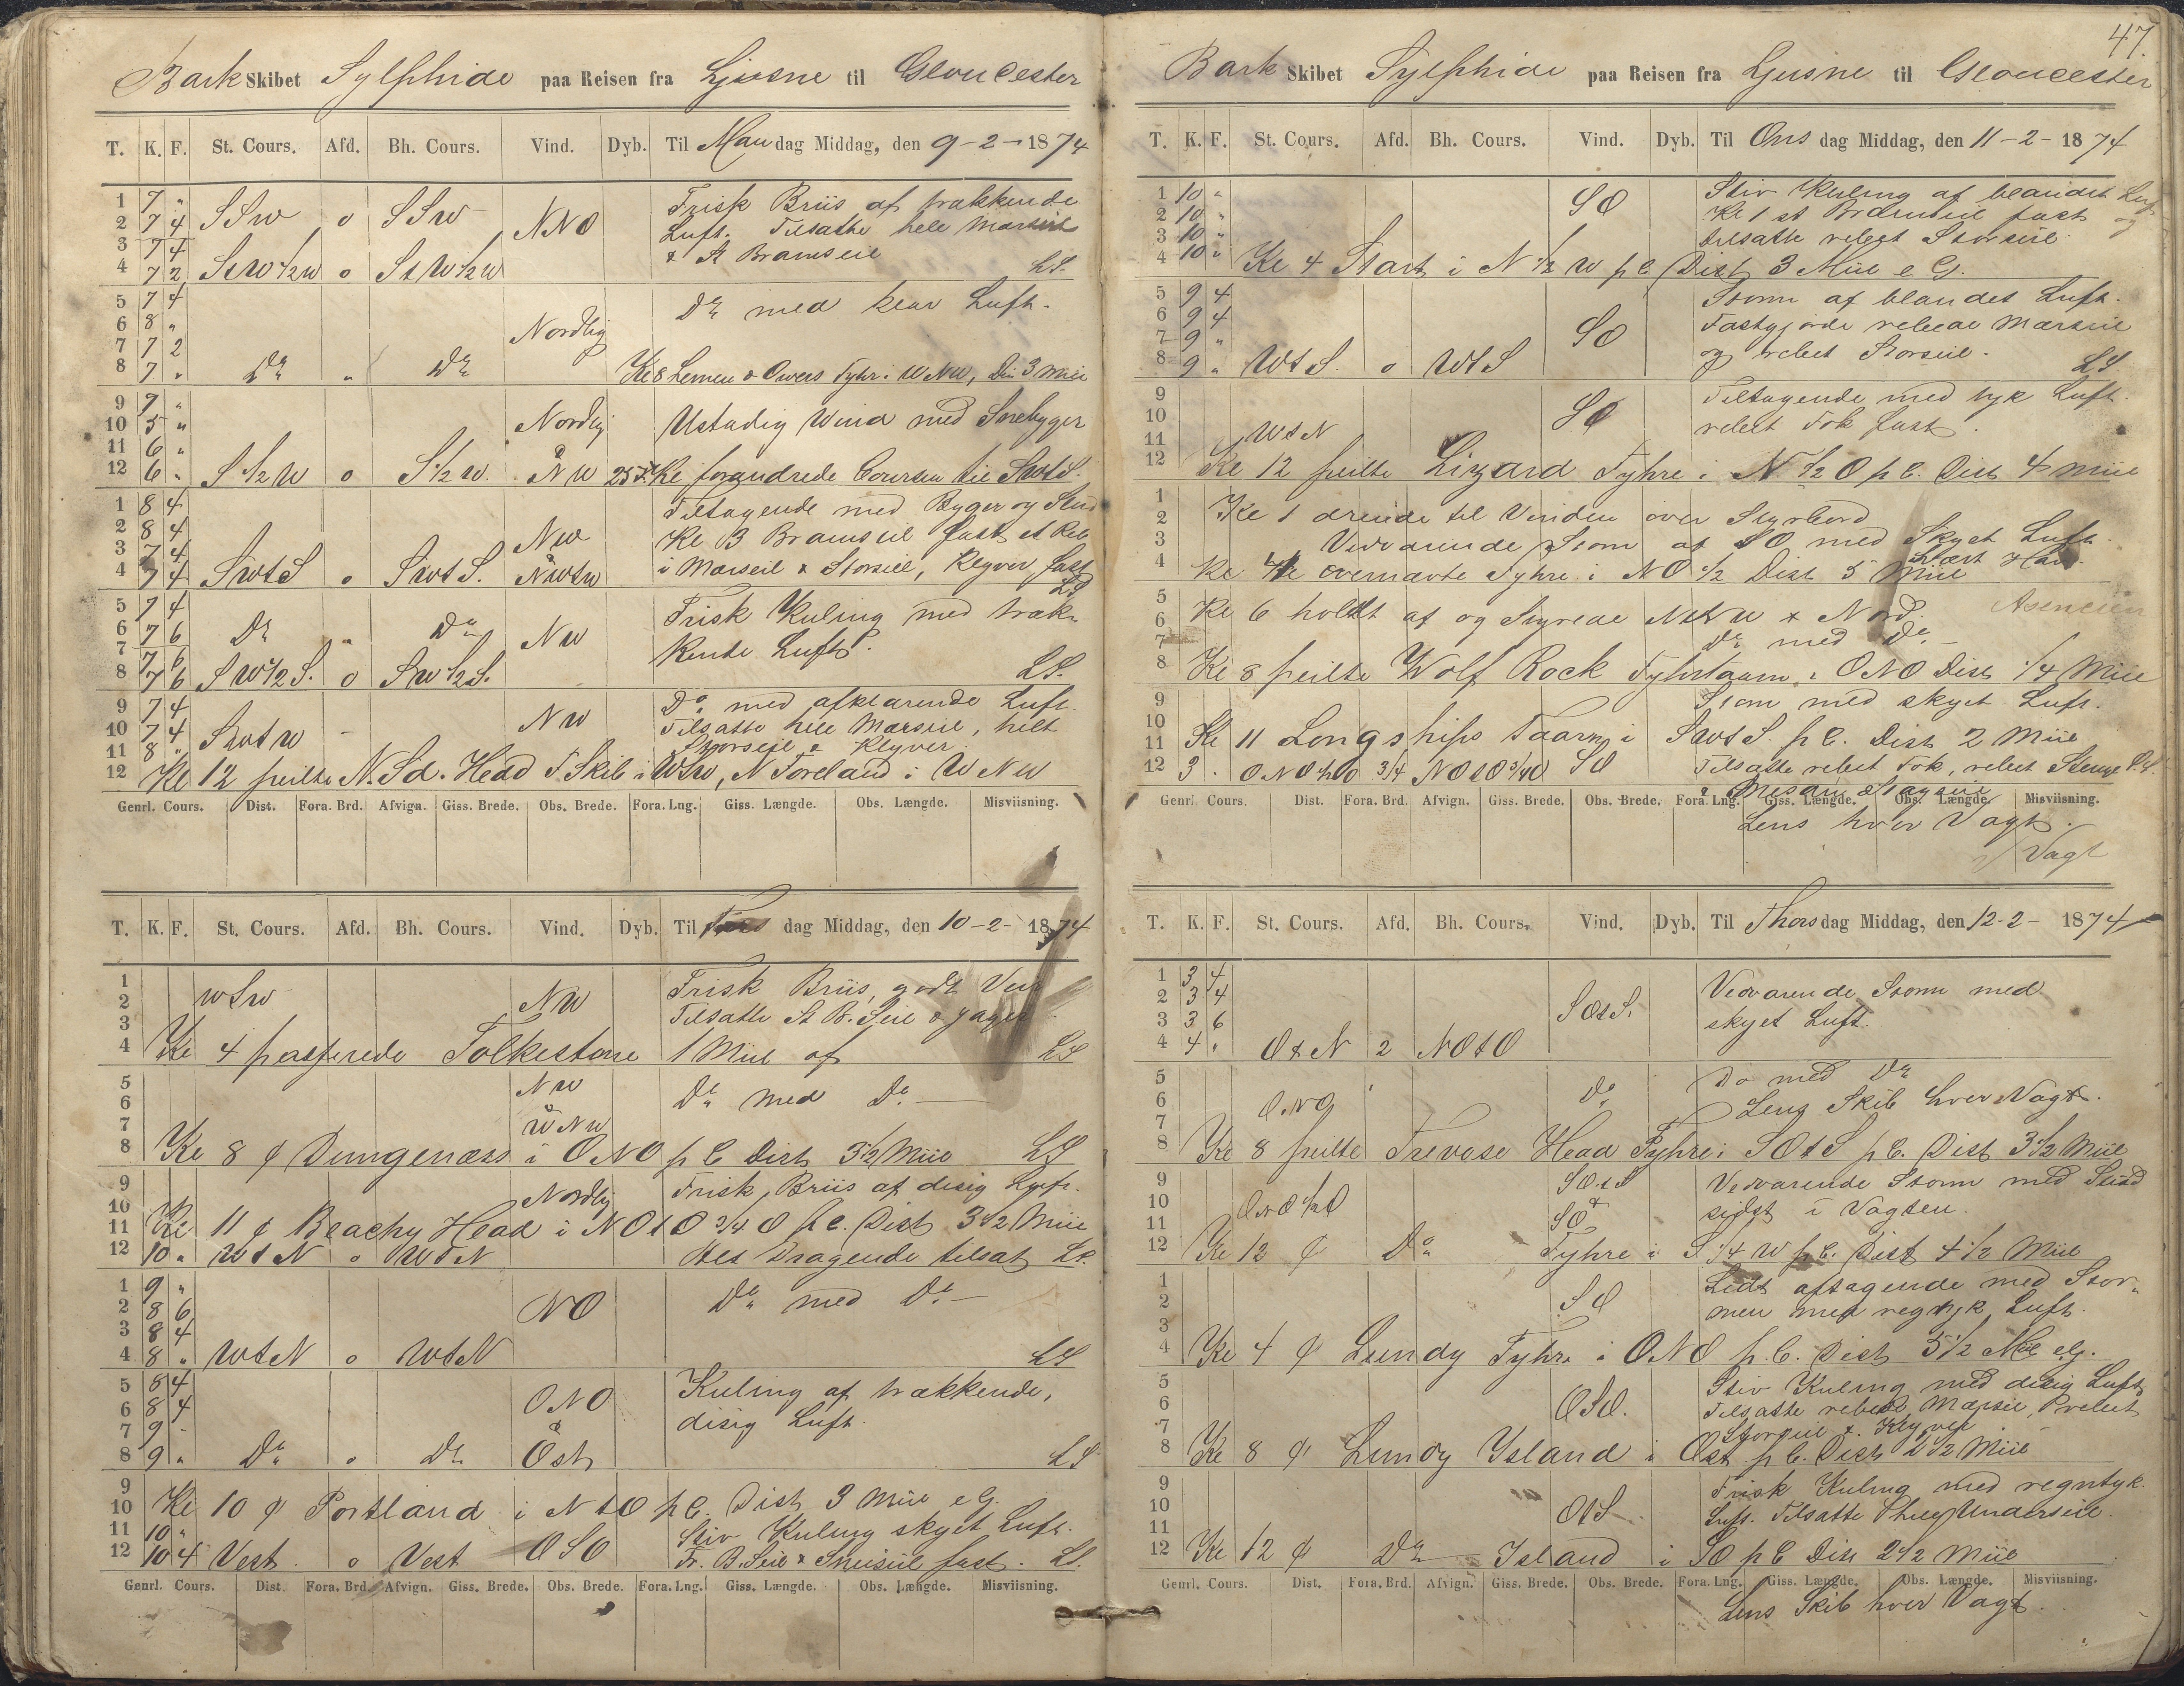 Bark Skibet Sylphide paa Reisen fra Ljusne til Gloucester
T. K. F. St. Cours. Afd. Bh. Cours. Vind. Dyb. Til Mandag Middag, den 9-2-1874
1 7 "
2 7 4 SSW o SSW NNO
3 7 4
4 7 2 StW1/2W o StW1/2W
Frisk Briis af trækkende
Luft. Tilsatte hele Marseil
& St Bramseil LS.
5 7 4
6 8 "
7 7 2 Nordlig
8 7 " Do " Do
Do med klar Luft.
Kl 8 Lemen & Owers Fyhr i WNW, Dis 3 Miil
9 7 "
10 5 " Nordlig
11 6 " &
12 6 " S1/2W o S1/2W. NW 25 F.
Ustadig Wind med Snebyger
Kl forandrede Coursen til SWtS.
1 8 4
2 8 4
3 7 4 NW
4 7 4 SWtS o SWtS. & NWtW
Tiltagende med Byger og Slud
Kl 3 Bramseil fast et Reb
i Marseil & Storseil, Klyver fast
LS
5 7 4
6 7 6 Do " Do NW
7 7 6
8 7 6 SW1/2S. o SW1/2S.
Frisk Kuling med træk-
kende Luft.
LS.
9 7 4
10 7 4 SWtW - NW
11 8 "
Do med afklarende Luft.
Tilsatte hele Marseil, helt
Storseil & Klyver
12 Kl 12 peilte N. Sd. Head F. Skib i WSW, N Foreland i WNW
Genrl. Cours. Dist. Fora. Brd. Afvign. Giss. Brede. Obs. Brede. Fora. Lng. Giss. Længde. Obs. Længde. Misviisning.
T. K. F. St. Cours. Afd. Bh. Cours. Vind. Dyb. Til Tirs dag Middag, den 10-2-1874
1
2 WSW NW
3
Frisk Briis, godt Veir
Tilsatte St B. Seil & Jager
4 Kl 4 passerede Folkestone 1 Miil af LS
5 NW
6 &
7 WNW
Do med Do
8 Kl 8 ¢ Dungenæss i ONO p C Dist 3 1/2 Miil LS
9
10 Nordlig
Frisk Briis af disig Luft.
11 Kl 11 ¢ Beachy Head i NOtO 3/4 O p C. Dist 3 1/2 Miil
12 10 " WtN o WtN Alt Dragende tilsat LS.
1 9 "
2 8 6 NO
3 8 4
4 8 " WtN o WtN
Do med Do
LS
5 8 4
6 8 4 ONO
7 9 - &
8 9 " Do o Do Öst
Kuling af trækkende,
disig Luft.
LS
9
10 Kl 10 ¢ Portland i NtO p C. Dist 3 Miil e G.
11 10 "
12 10 4 Vest. o Vest OSO
Stiv Kuling skyet Luft.
Fr. B. Seil & Sneiseil fast. LS.
Genrl. Cours. Dist. Fora. Brd. Afvign. Giss. Brede. Obs. Brede. Fora. Lng. Giss. Længde. Obs. Længde. Misviisning.
47.
Bark Skibet Sylphide paa Reisen fra Ljusne til Gloucester
T. K. F. St. Cours. Afd. Bh. Cours. Vind. Dyb. Til Ons dag Middag, den 11-2-1874
1 10 "
2 10 " SO
3 10 "
4 10 "
Stiv Kuling af blandet Luft
Kl 1 st Bramseil fast og
tilsatte rebet Storseil
Kl 4 Start i N 1/2 W p C. Dist 3 Miil e G.
5 9 4
6 9 4
7 9 " SO
8 9 " WtS. o WtS
Storm af blandet Luft.
Fastgjorde rebede Marseil
og rebet Storseil.
LS
9
10 SO
11 WtN
Tiltagende med tyk Luft.
rebet Fok fast.
12 Kl 12 peilte Lizard Fyhre i N 1/2 O p C. Dist 4 Miil
1
2 Kl 1 dreiede til Vinden over Styrbord
3 Vedvarende Storm af SO med Skyet Luft.
4 Kl 4 ovennævte Fyhre i NO 1/2 Dist 5 Miil
5
6 Kl 6 holdt af og Styrede NtW & Nord.
7 Do med Do
8 Kl 8 peilte Wolf Rock Fyhrtaarn i ONO Dist 1/4 Miil
9
10 Storm med skyet Luft.
11 Kl 11 Longships Taarn i SWtS. p C. Dist 2 Miil
12 3 . ONO 1/2 O 3/4 NOtO 3/4 O SO Tilsatte rebet Fok, rebet
& Mesan Stagseil
Genrl. Cours. Dist. Fora. Brd. Afvign. Giss. Brede. Obs. Brede. Fora. Lng. Giss. Længde. Obs. Længde. Misviisning.
Lens hver Vagt.
Vagt
T. K. F. St. Cours. Afd. Bh. Cours. Vind. Dyb. Til Thorsdag Middag, den 12-2-1874
1 3 4
2 3 4
3 3 6 SOtS.
4 4 " OtN 2 NOtO
Vedvarende Storm med
skyet Luft.
5
6 ONO Do
7
Do med Do
Lens Skib hver Vagt.
8 Kl 8 peilte Trevose Head Fyhre i SOtS p C. Dist 3 1/2 Miil
9 SOtS
10 ONO 1/2 O &
11 SO
Vedvarende Storm med Slud
sidst i Vagten.
12 Kl 12 ¢ Do Fyhre i S 1/4 W p C. Dist 4 1/2 Miil
1
2 SO
3
Lidt aftagende med Stor-
men med regntyk Luft.
4 Kl 4 ¢ Lundy Fyhre i ONO p. C. Dist 5 1/2 Miil e G.
5
6 OSO.
7
Stiv Kuling med disig Luft
Tilsatte rebede Marseil, rebet
Storseil & Klyver
8 Kl 8 ¢ Lundy Ysland i Ost p C. Dist 2 1/2 Miil
9
10 OtS
11
Frisk Kuling med regntyk.
Luft. Tilsatte Underseil.
12 Kl 12 ¢ Do Island i SO p C Dis 2 1/2 Miil
Genrl. Cours. Dist. Fora. Brd. Afvign. Giss. Brede. Obs. Brede. Fora. Lng. Giss. Længde. Obs. Længde. Misviisning.
Lens Skib hver Vagt.